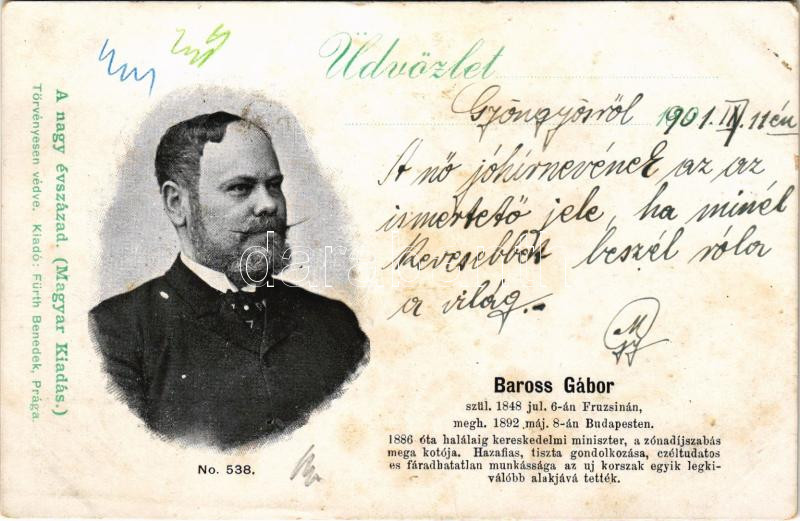 Üdvözlet
Gyöngyösről 1901. IV. 11én
A nő jóhírnevének az az
ismertető jele, ha minél
kevesebbet beszél róla
a világ.
Baross Gábor
szül. 1848 jul. 6-án Fruzsinán,
megh. 1892 máj. 8-án Budapesten.
1886 óta haláláig kereskedelmi miniszter, a zónadíjszabás
mega kotója. Hazafias, tiszta gondolkozása, czéltudatos
es fáradhatatlan munkássága az uj korszak egyik legki-
válóbb alakjává tették.
No. 538.
A nagy évszázad. (Magyar Kiadás.)
Törvényesen védve. Kiadó: Fürth Benedek, Prága.
darabanth